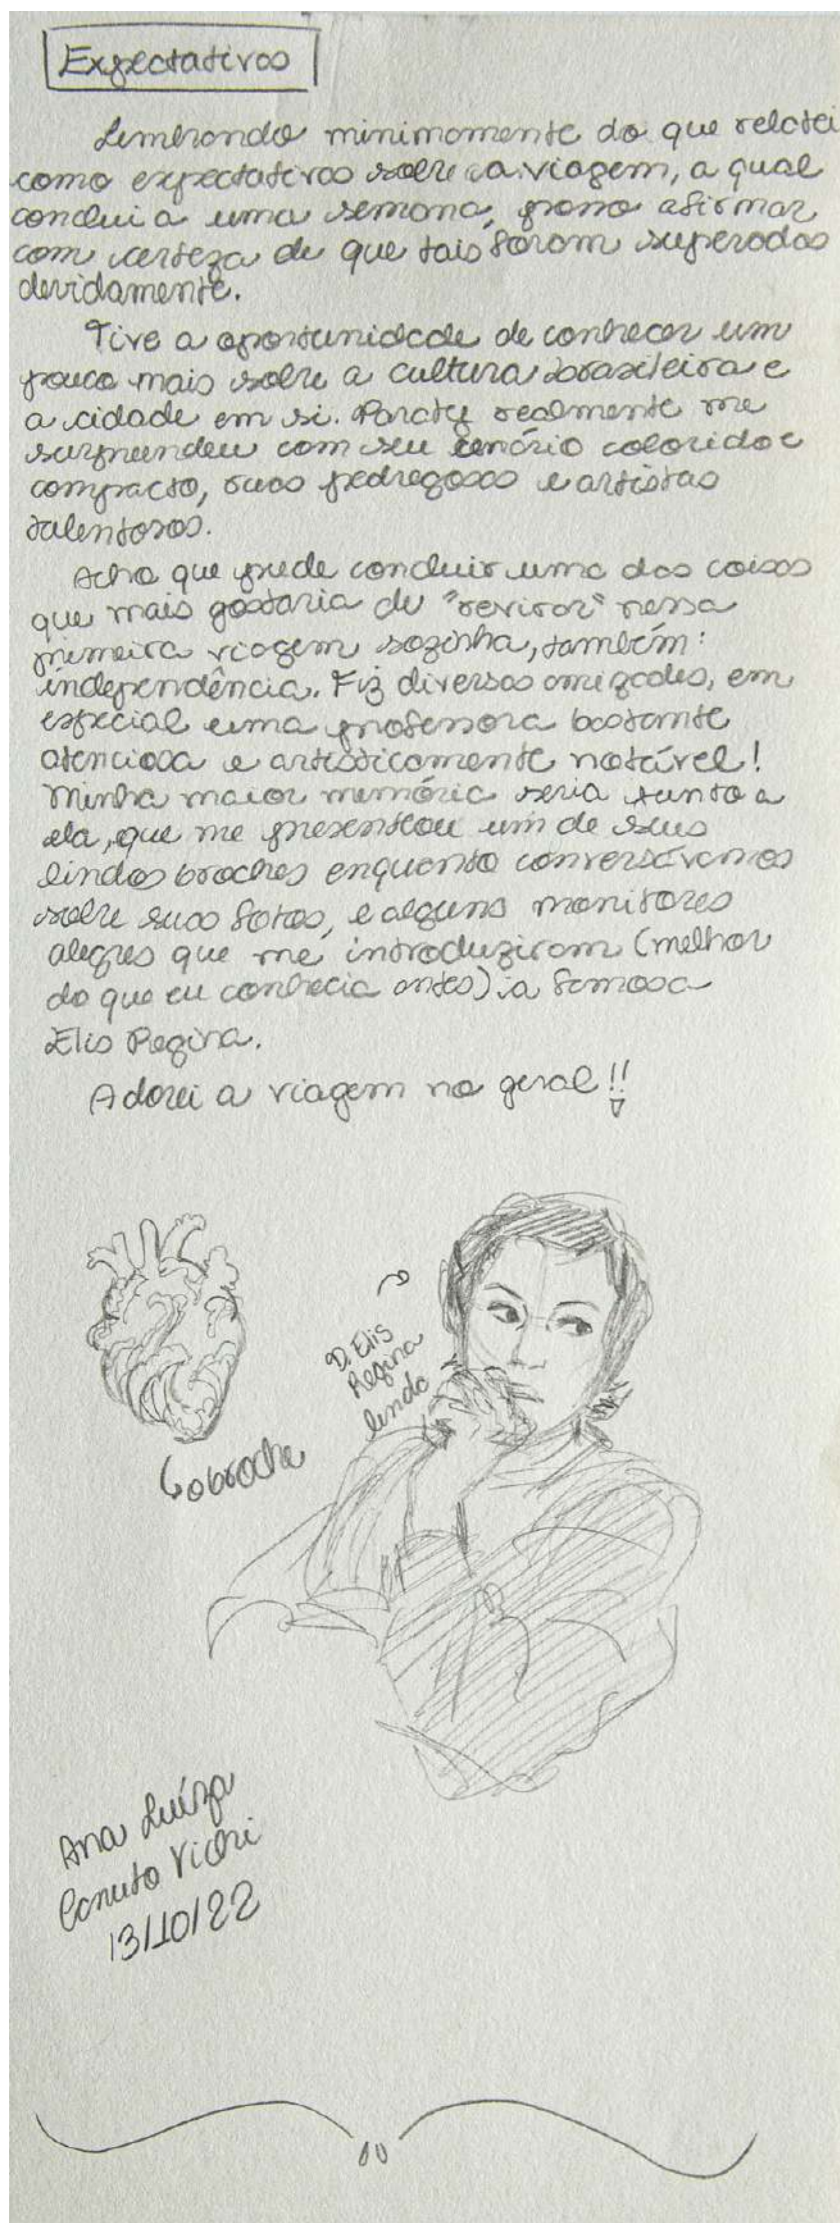 Expectativas
Lembrando minimamente do que relatei
como expectativas sobre a viagem, a qual
conclui a uma semana, posso afirmar
com certeza de que tais foram superadas
devidamente.
Tive a oportunidade de conhecer um
pouco mais sobre a cultura brasileira e
a cidade em si. Paraty realmente me
surpreendeu com seu cenário colorido e
compacto, ruas pedregosas e artistas
talentosos.
Acho que pude concluir uma das coisas
que mais gostaria de "revirar" nessa
primeira viagem sozinha, também:
independência. Fiz diversas amizades, em
especial uma professora bastante
atenciosa e artisticamente notável!
Minha maior memória seria junto a
ela, que me presenteou um de seus
lindos broches enquanto conversávamos
sobre suas fotos, e alguns monitores
alegres que me introduziram (melhor
do que eu conhecia antes) a famosa
Elis Regina.
Adorei a viagem no geral!!
D. Elis
Regina
linda
o broche
Ana Luíza
Canuto Vichi
13/10/22